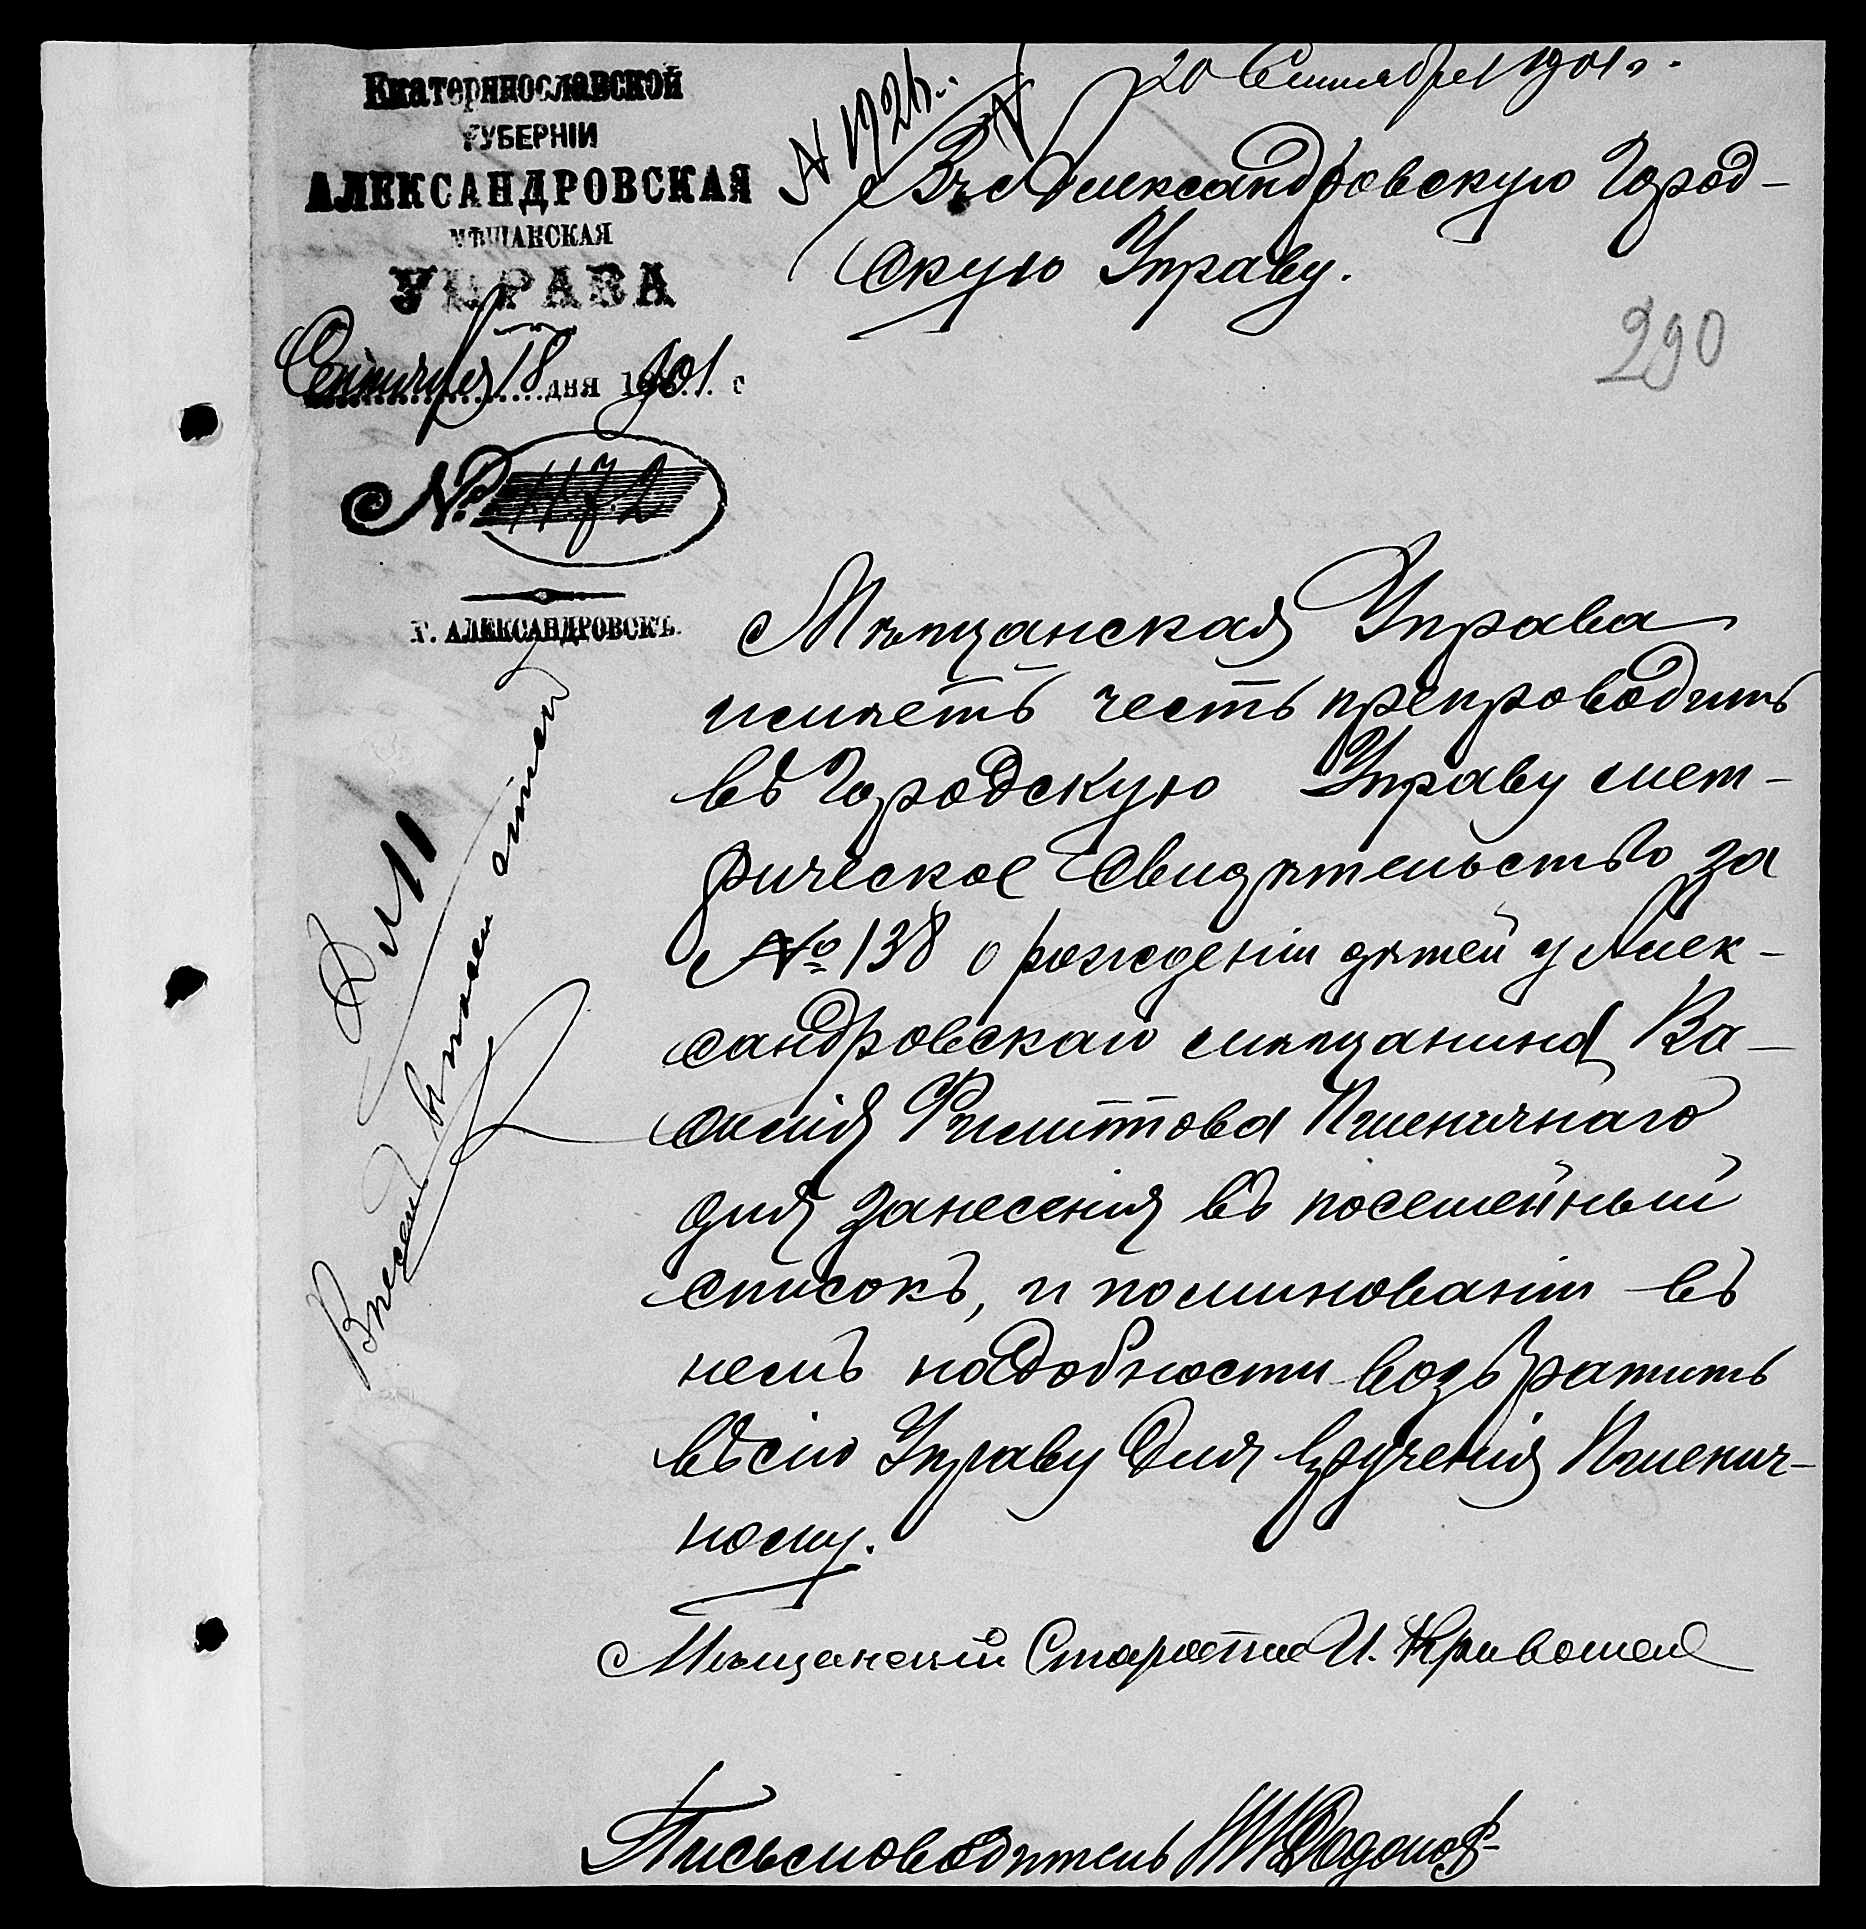 Екатеринославской
ГУБЕРНІИ
АЛЕКСАНДРОВСКАЯ
МѢЩАНСКАЯ
УПРАВА
Сентября 18 дня 1901 г
№ 1172
Г. АЛЕКСАНДРОВСКЪ.
20 Сентября 1901 г.
Въ Александровскую Город-
скую Управу.
290
Мѣщанская Управа
имѣетъ честь препроводить
въ Городскую Управу мет-
рическое Свидѣтельство за
№ 138 о рожденіи дѣтей у Алек-
сандровскаго мѣщанина Ва-
силія Филиппова Пшеничнаго
для занесенія въ посемейный
списокъ, и по минованіи въ
немъ надобности возвратить
въ сію Управу для врученія Пшенич-
ному.
Мѣщанскій Староста И. Кривошея
Письмоводитель